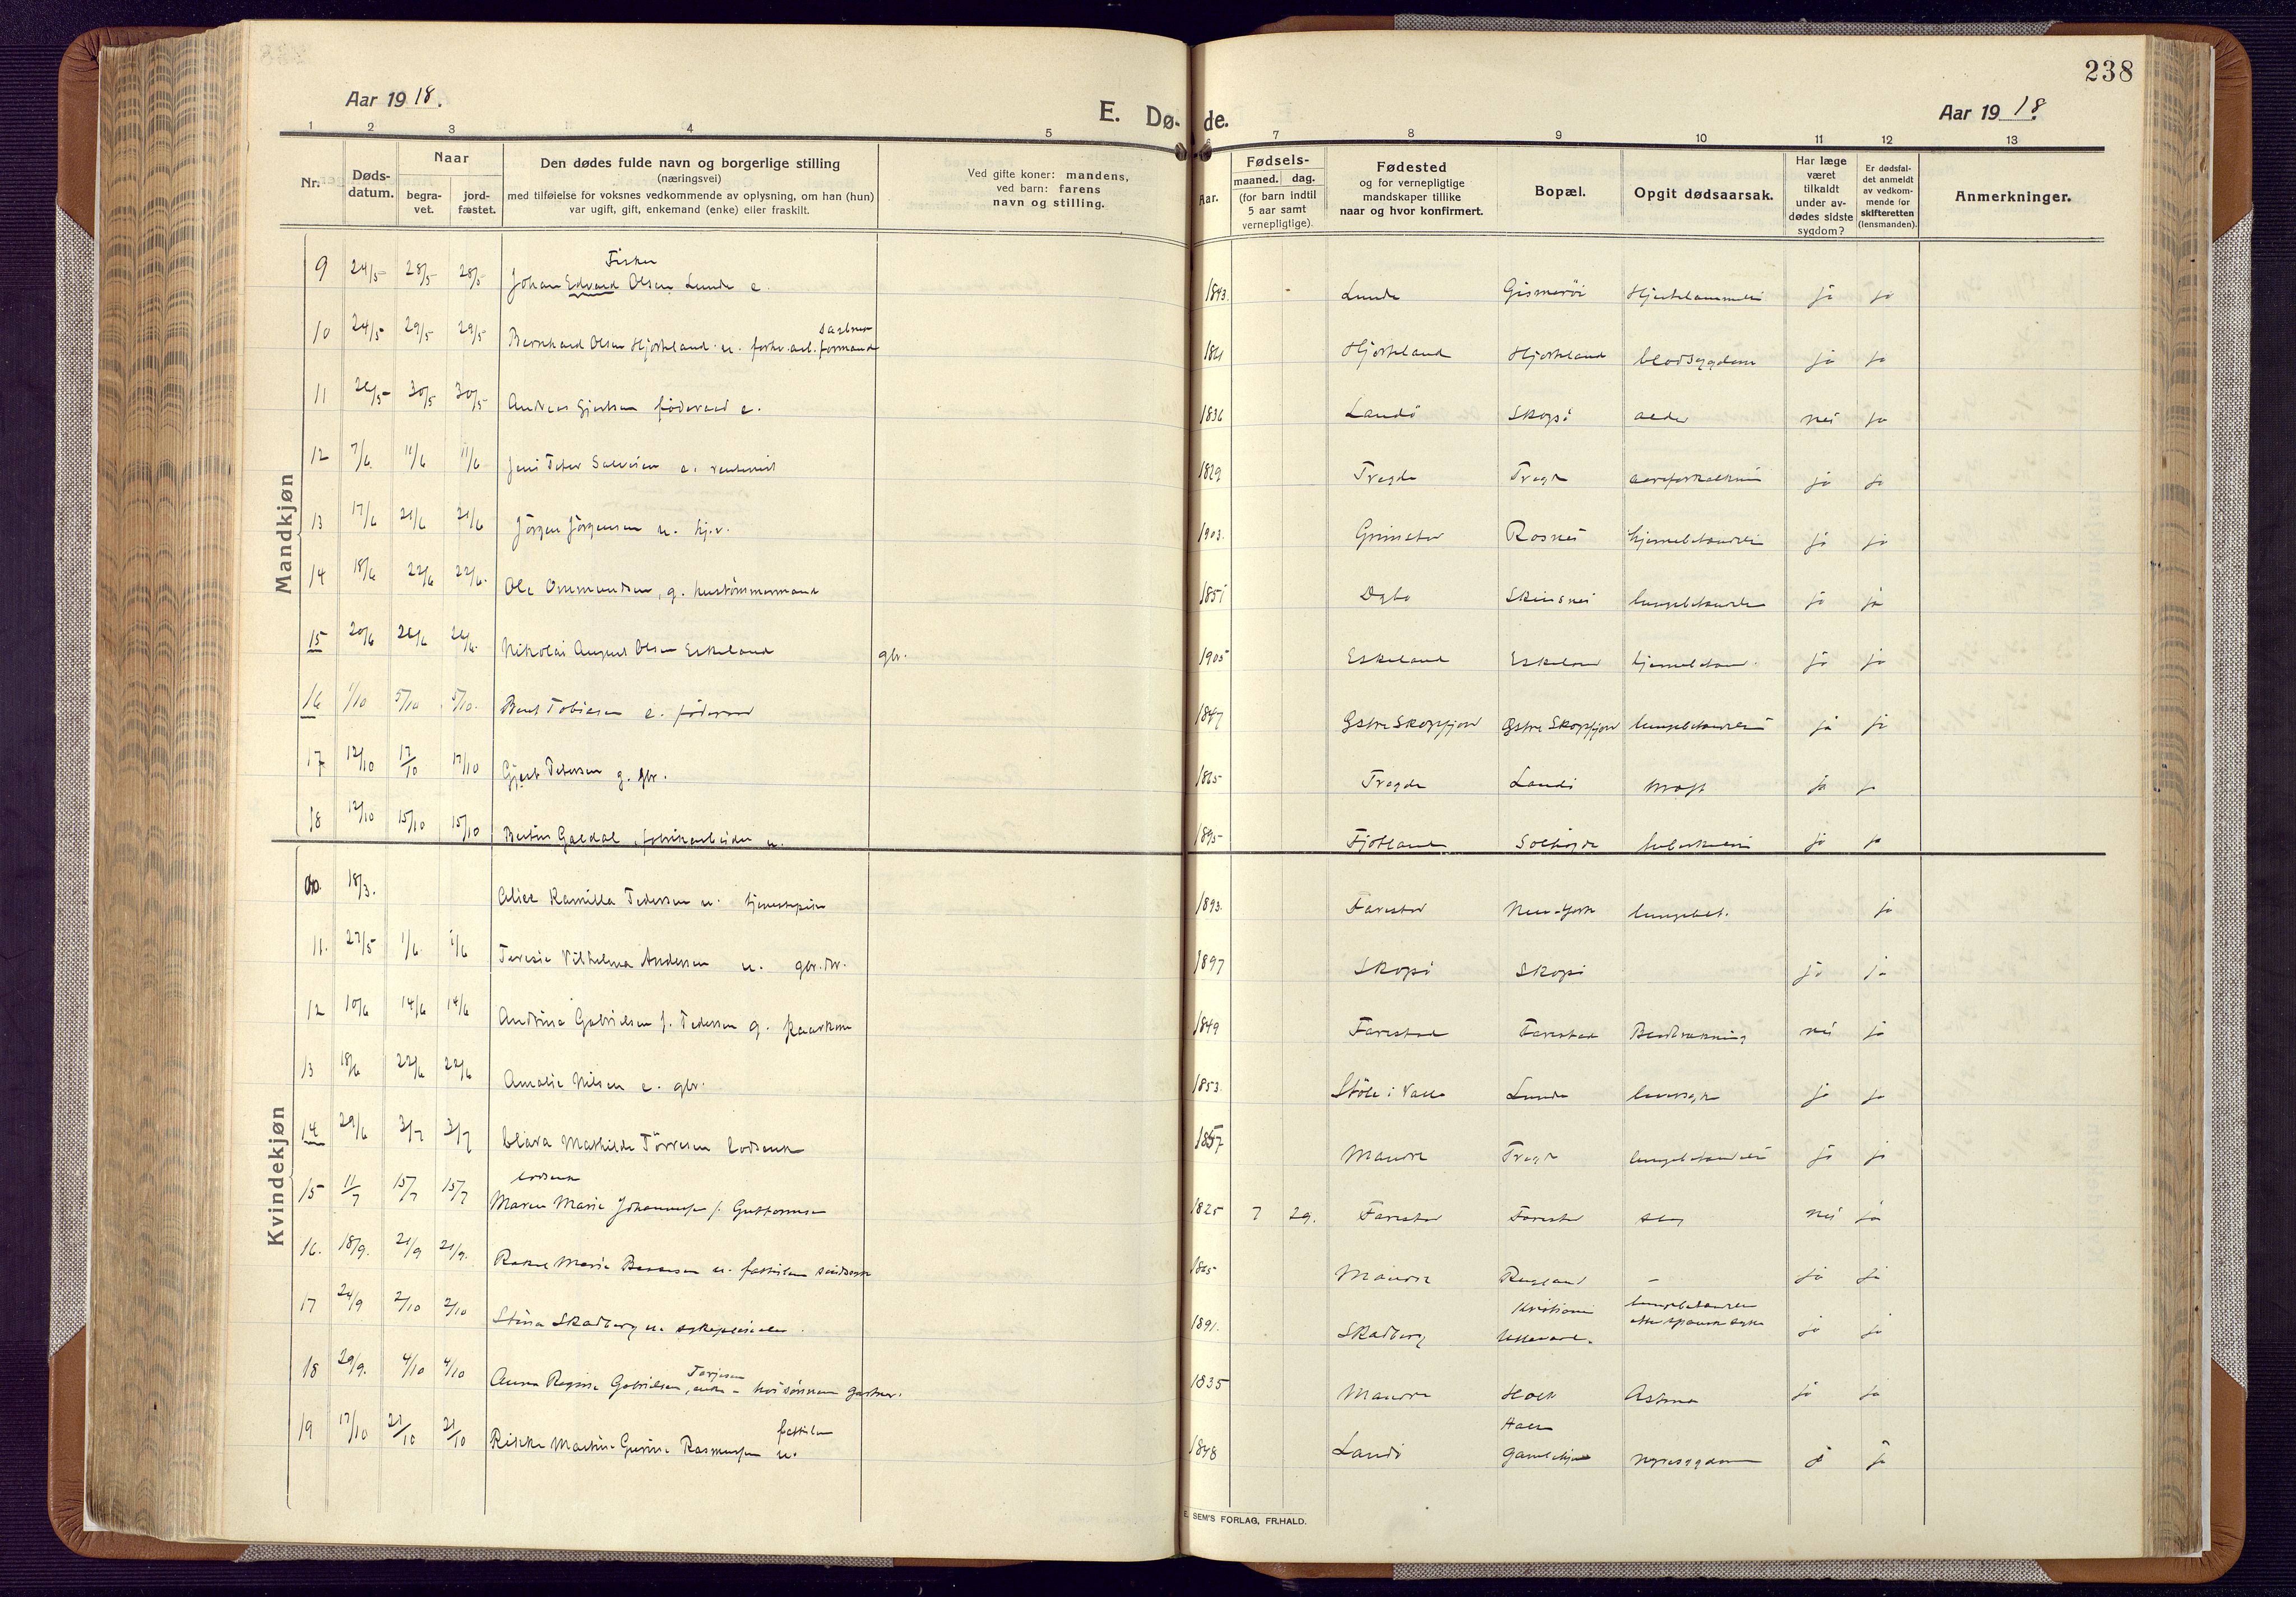 238
Aar 1918.
E. Dø- de.
Aar 1918.
1 2 3 4 5 6 7 8 9 10 11 12 13
Nr.
Døds-
datum.
Naar
begra-
vet.
jord-
fæstet.
Den dødes fulde navn og borgerlige stilling
(næringsvei)
med tilføielse for voksnes vedkommende av oplysning, om han (hun)
var ugift, gift, enkemand (enke) eller fraskilt.
Ved gifte koner: mandens,
ved barn: farens
navn og stilling.
Aar.
Fødsels-
maaned. dag.
(for barn indtil
5 aar samt
vernepligtige).
Fødested
og for vernepligtige
mandskaper tillike
naar og hvor konfirmert.
Bopæl.
Opgit dødsaarsak.
Har læge
været
tilkaldt
under av-
dødes sidste
sygdom?
Er dødsfal-
det anmeldt
av vedkom-
mende for
skifteretten
(lensmanden).
Anmerkninger.
Mandkjøn
Fisker
9 24/5 28/5 28/5 Johan Edvard Olsen Lunde e. 1843. Lunde Gismerøi ja ja
10 24/5 29/5 29/5 Bernhard Olsen Hjorteland u. formand Hjorteland Hjorteland blodsygdom ja ja
11 26/5 30/5 30/5 Andreas Gjertsen føderaad e. 1836 Landø Skogsø alder nei ja
12 7/6 11/6 11/6 Jens Peter Salvesen e. 1829 Tregde Tregde ja ja
13 17/6 21/6 21/6 Jörgen Jörgensen u. 1903. Grimstad Rosnes ja ja
14 18/6 22/6 22/6. Ole Ommundsen, g. hustømmermand 1851 Dybo Skinsnes lungebetændelse ja ja
15 20/6 26/6 26/6. Nikolai August Olsen Eskeland gbr. 1905 Eskeland Eskeland ja ja
16 1/10 5/10 5/10. Bent Tobiasen e. føderaad 1847 Østre Skogsfjord Østre Skogsfjord lungebetændelse ja ja
17 12/10 17/10 17/10 Gjert Petersen g. gbr. 1865 Tregde Landø ja ja
18 12/10 15/10 15/10 Galdal, fabrikarbeider u. 1895 Fjotland Solhøgda tuberkulose ja ja
Kvindekjøn
10. 18/3. Alice Kamilla Pedersen u. tjenestepike 1893. Farestad New-York lungebet. ja
11. 27/5 1/6 1/6 Teresie Vilhelma Andersen u. gbr.dtr. 1897 Skogsø Skogsø ja ja
12 10/6 14/6 14/6 Andrine Gabrielsen f. Pedersen g. kaarkone 1849 Farestad Farestad nei ja
13 18/6 22/6 22/6 Amalie Nilsen e. gbr. 1853. Støle i Valle Lunde leversyke ja ja
14 29/6 3/7 3/7 Clara Mathilde Tørresen lodsenke 1857 Mandal Tregde lungebetændelse ja ja
lodsenke
15 11/7 15/7 15/7 Maren Marie Johannesen f. Guttormsen 1825 7 29. Farestad Farestad slag nei ja
16. 18/9. 21/9 21/9. Rakel Marie u. fattiglem 1865 Mandal – ja ja
17 24/9 2/10 2/10 Stina Skadberg u. sykepleierske. 1891. Skadberg Kristiania
Ullevaal. lungebetændelse
efter spansk syke ja ja
Torjesen
18 29/9. 4/10 4/10 Anna Regine Gabrielsen, enke – hos sønnen gartner. 1835 Mandal Holt Astma ja ja
fattiglem
19 17/10 21/10 21/10 Rikke Martine Gurine Rasmussen u. 1848 Landø Halse
Gamlehjem nyresygdom ja ja
E. SEM'S FORLAG, FR.HALD.